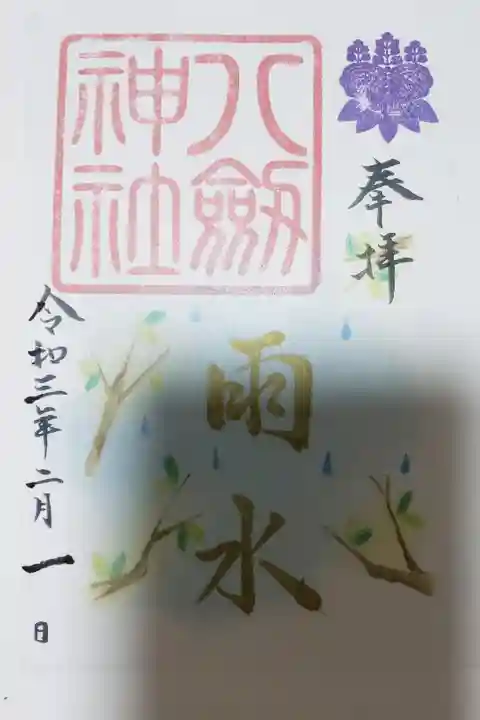 奉拝
八劔神社
雨水
令和三年二月一日